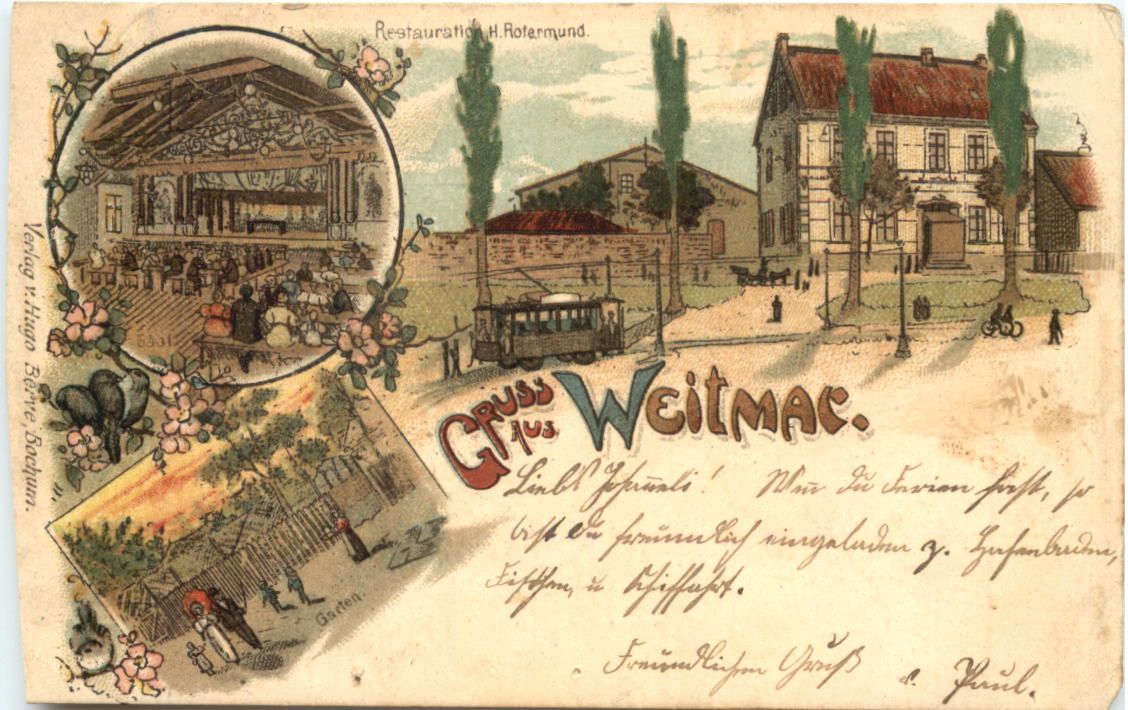 Restauration H. Rotermund.
Saal
GRUSS
AUS
WEITMAR.
Garten.
Verlag v. Hugo Börve, Bochum.
Liebes ! Wenn du Ferien hast, so
bist Du freundlich eingeladen z.
Fischen, u Schiffahrt.
Freundlichen Gruß
Paul.